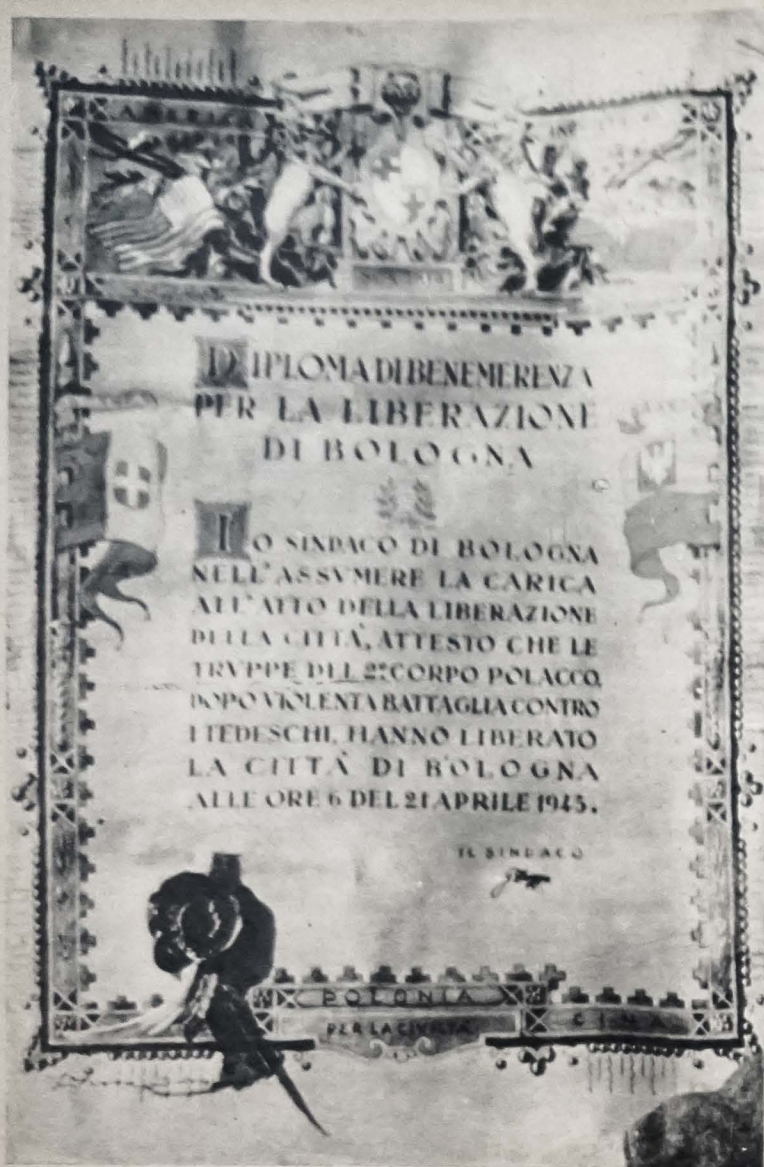 AMERICA
DIPLOMA DI BENEMERENZA
PER LA LIBERAZIONE
DI BOLOGNA
IO SINDACO DI BOLOGNA
NELL'ASSVMERE LA CARICA
ALL'ATTO DELLA LIBERAZIONE
DELLA CITTÀ, ATTESTO CHE LE
TRVPPE DEL 2º CORPO POLACCO,
DOPO VIOLENTA BATTAGLIA CONTRO
I TEDESCHI, HANNO LIBERATO
LA CITTÀ DI BOLOGNA
ALLE ORE 6 DEL 21 APRILE 1945.
IL SINDACO
POLONIA
PER LA CIVILTÀ
CINA